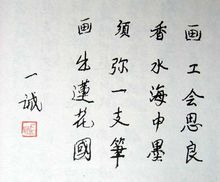 画工会思良
香水海中墨
须弥一支筆
画出蓮花國
一诚